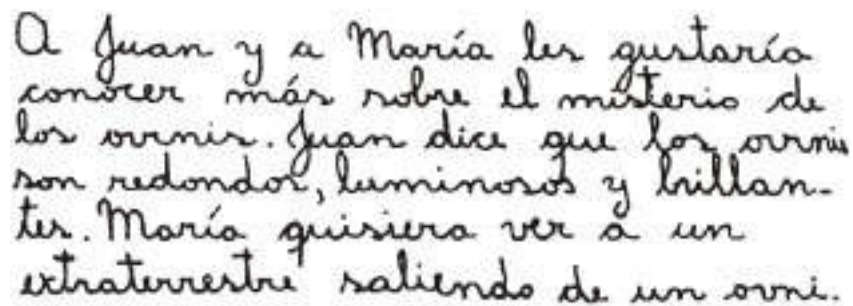 A Juan y a María les gustaría
conocer más sobre el misterio de
los ovrnis. Juan dice que los ovrnis
son redondos, luminosos y brillan-
tes. María quisiera ver a un
extraterrestre saliendo de un ovni.